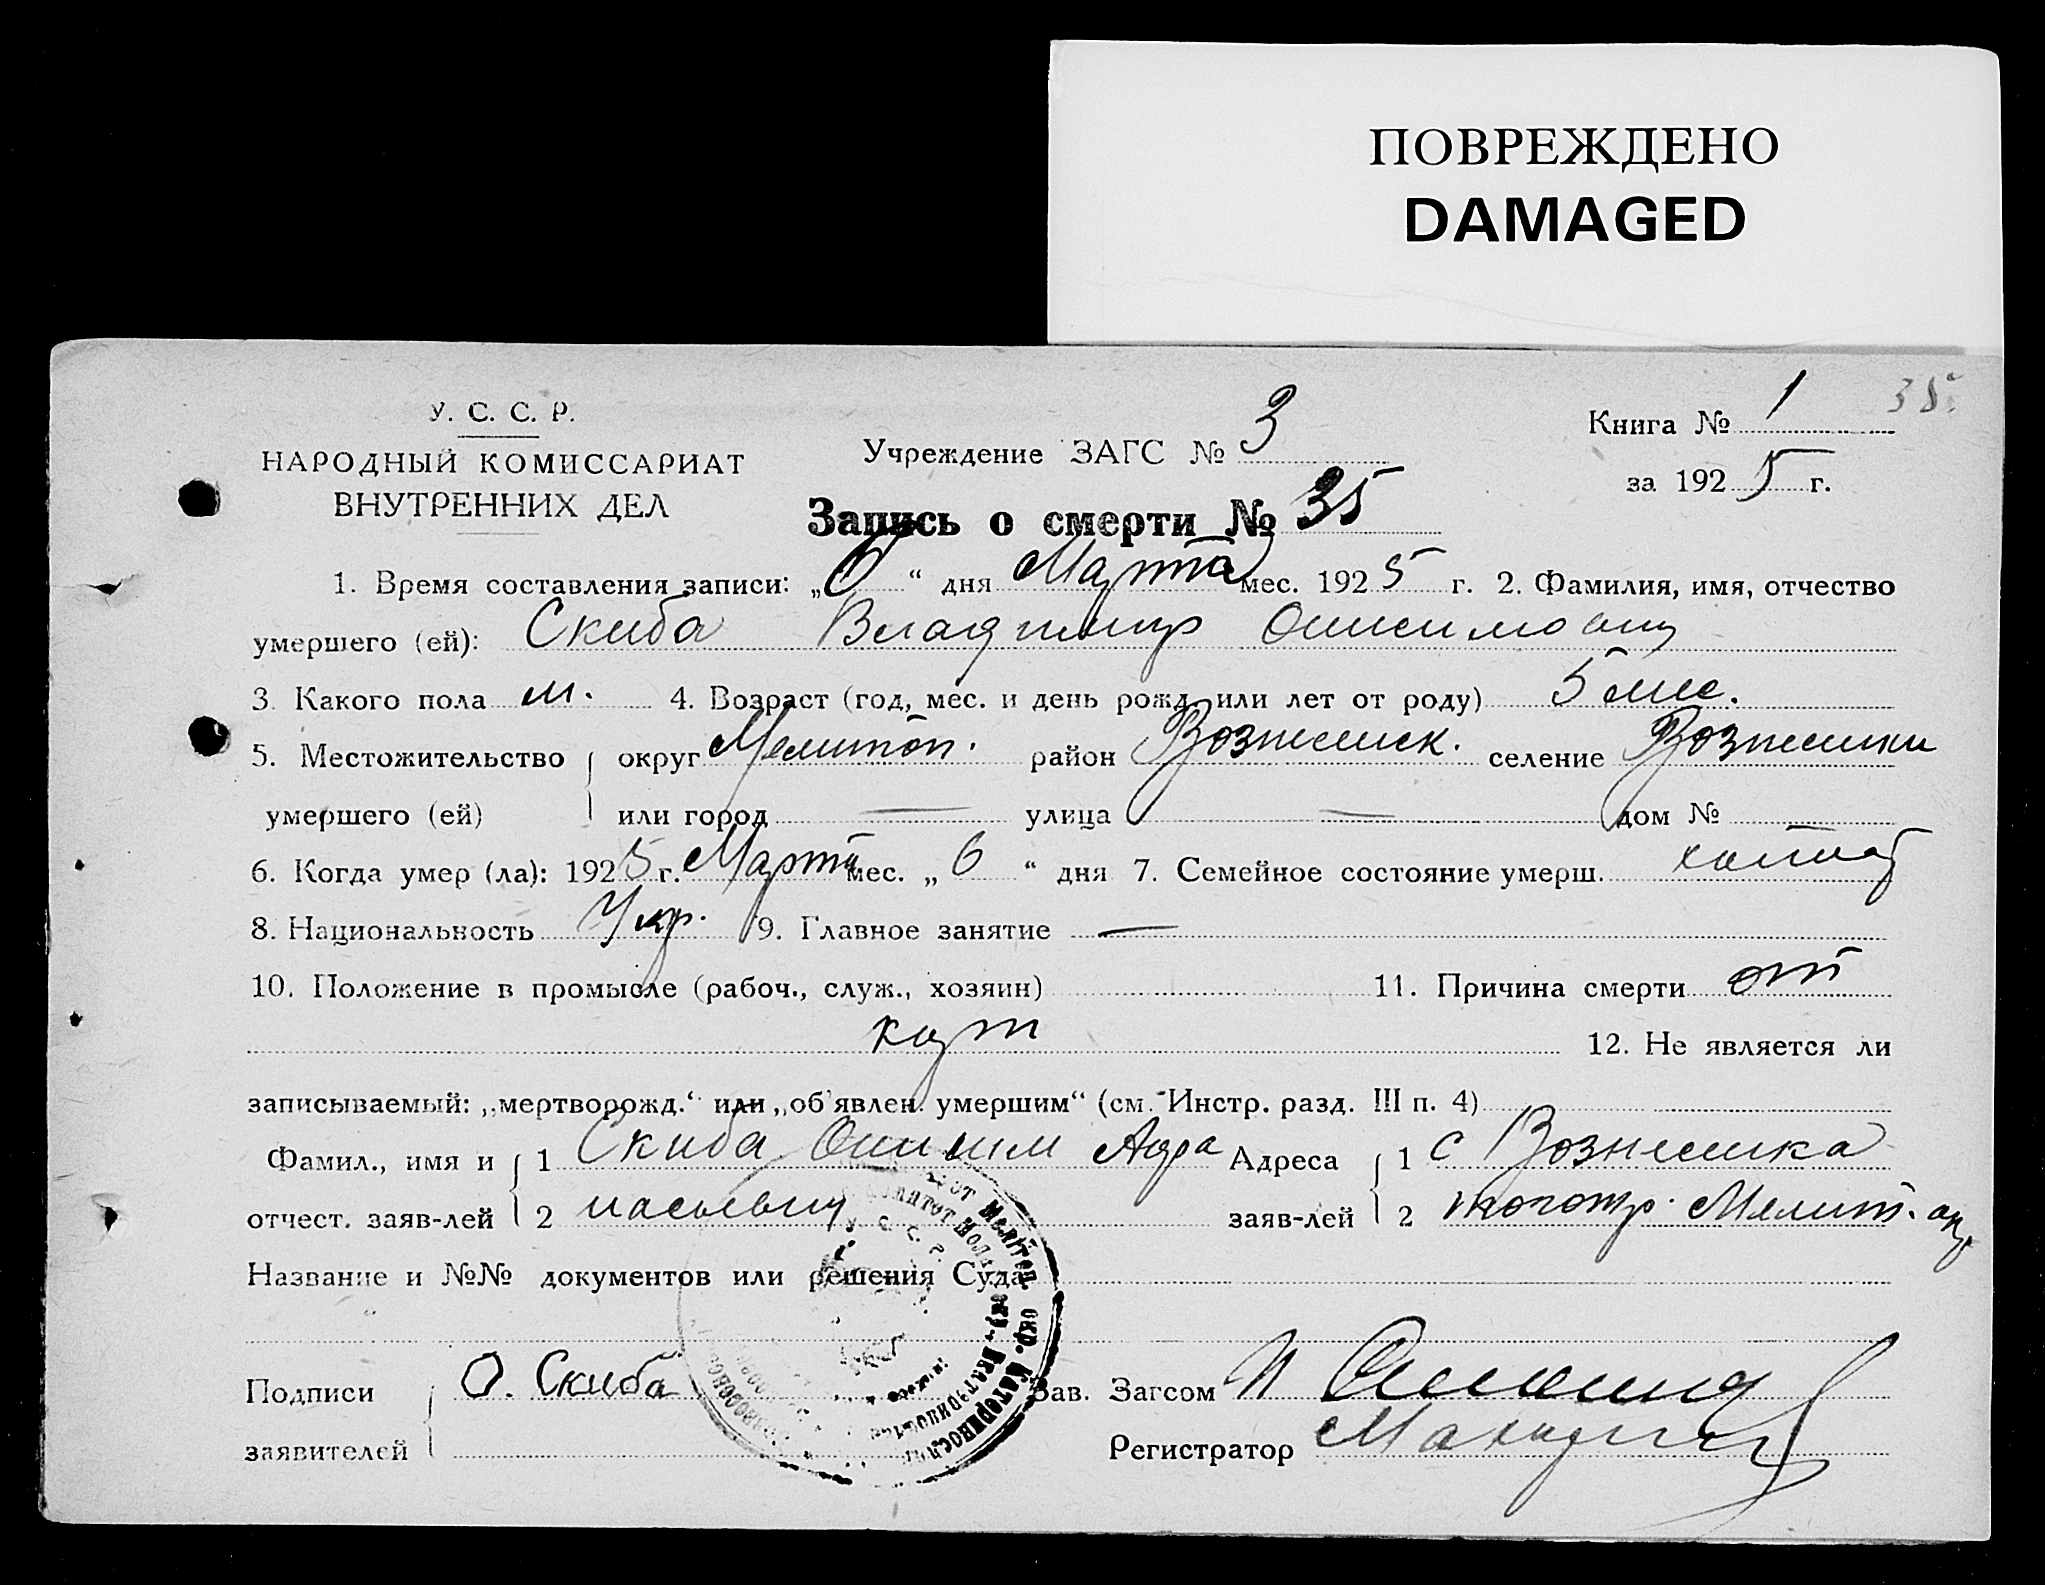 ПОВРЕЖДЕНО
DAMAGED
У. С. С. Р.
НАРОДНЫЙ КОМИССАРИАТ
ВНУТРЕННИХ ДЕЛ
Учреждение ЗАГС № 3
Книга № 1 35.
за 1925 г.
Запись о смерти № 35
1. Время составления записи: „6“ дня Марта мес. 1925 г. 2. Фамилия, имя, отчество
умершего (ей): Скиба Владимир Онисимович
3. Какого пола м. 4. Возраст (год, мес. и день рожд. или лет от роду) 5 мес.
5. Местожительство округ Мелитоп. район Вознесенск. селение Вознесенки
умершего (ей) или город — улица — дом №
6. Когда умер (ла): 1925 г. Марта мес. „6“ дня 7. Семейное состояние умерш. холост
8. Национальность Укр. 9. Главное занятие —
10. Положение в промысле (рабоч., служ., хозяин) 11. Причина смерти от
12. Не является ли
записываемый: „мертворожд.“ или „об'явлен. умершим“ (см. Инстр. разд. III п. 4)
Фамил., имя и 1 Скиба Онисим Адреса 1 с Вознесенка
отчест. заяв-лей 2 заяв-лей 2 Мелит. окр.
Название и №№ документов или решения Суда
Подписи О. Скиба Зав. Загсом
заявителей Регистратор